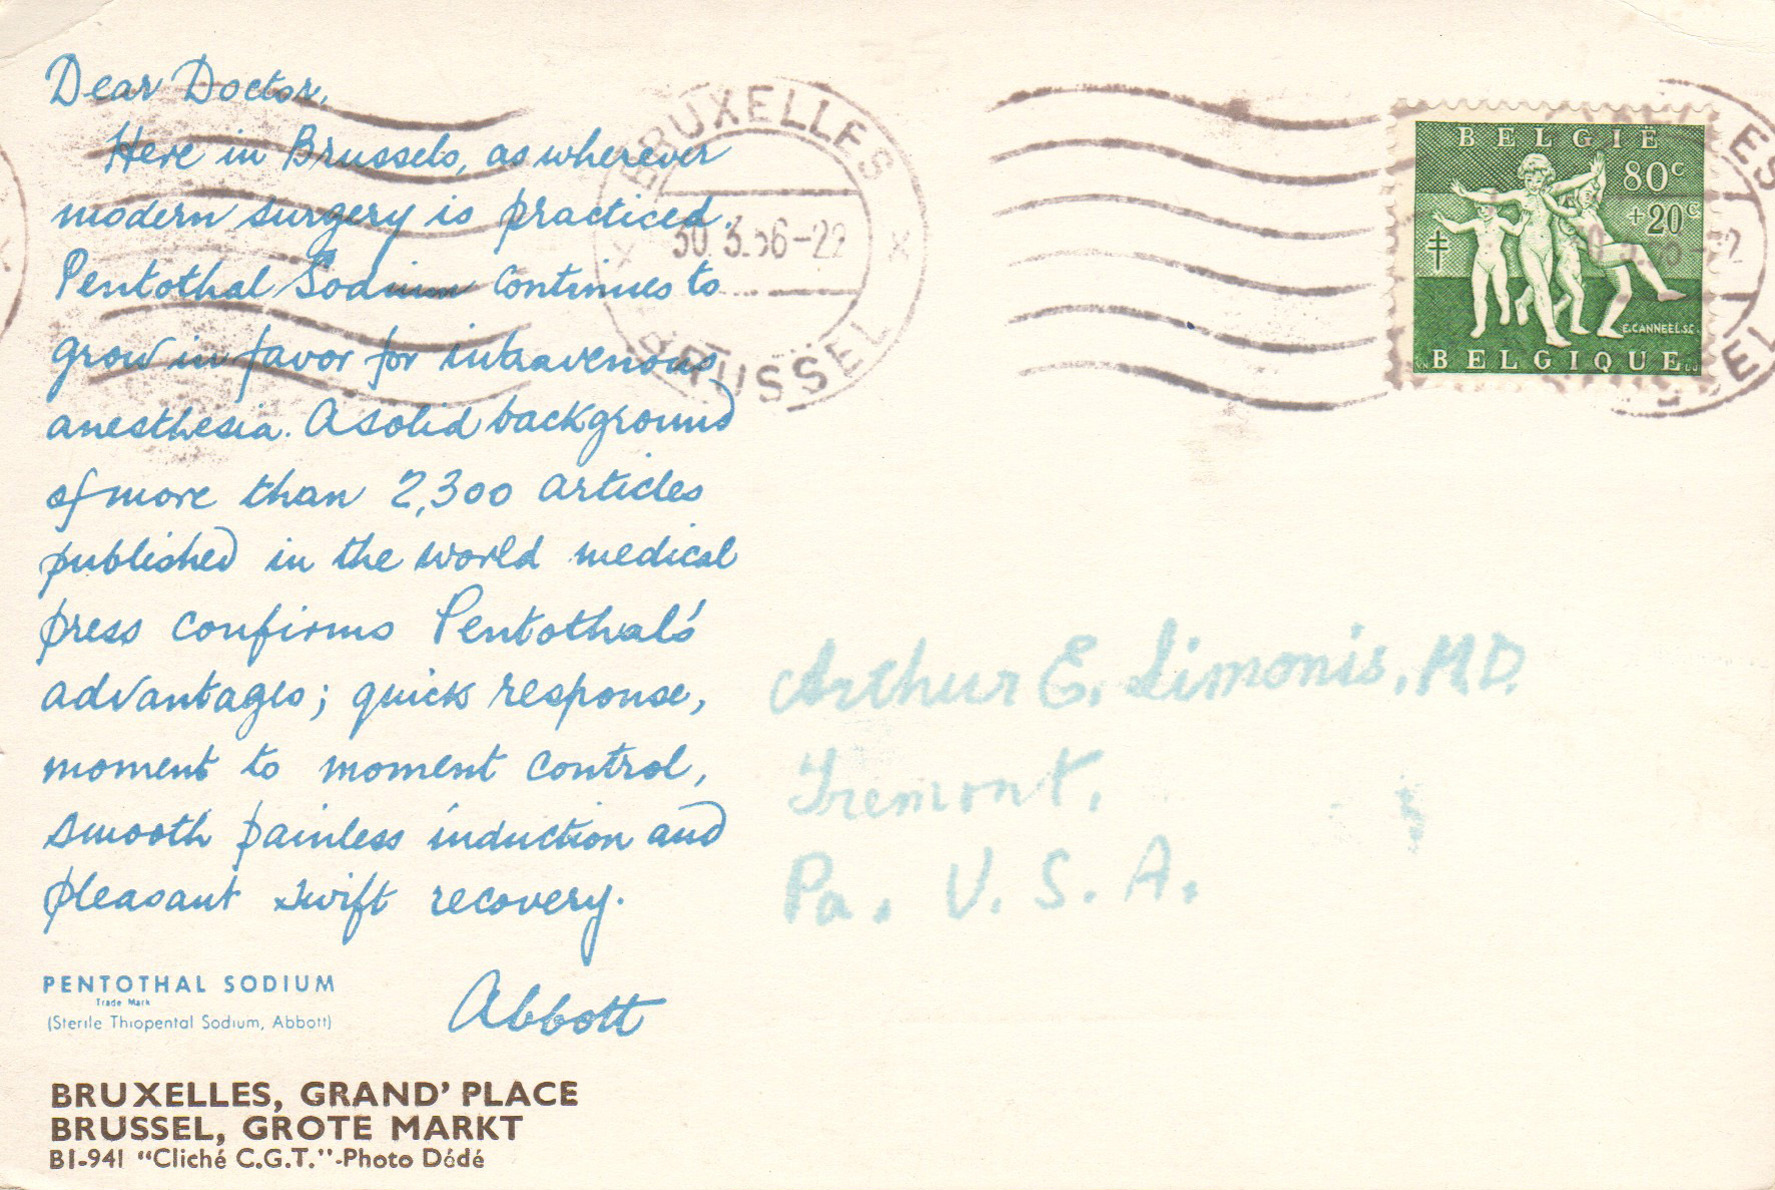 Dear Doctor,
Here in Brussels, as wherever
modern surgery is practiced,
Pentothal Sodium continues to
grow in favor for intravenous
anesthesia. A solid background
of more than 2,300 articles
published in the world medical
press confirms Pentothal's
advantages; quick response,
moment to moment control,
smooth painless induction and
pleasant swift recovery.
Abbott
PENTOTHAL SODIUM
Trade Mark
(Sterile Thiopental Sodium, Abbott)
BRUXELLES, GRAND' PLACE
BRUSSEL, GROTE MARKT
B1-941 "Cliché C.G.T."-Photo Dédé
BRUXELLES
30.3.56-22
BRUSSEL
BELGIË
80c
+20c
E.CANNEEL.SC.
BELGIQUE
Arthur E. Limonis, M.D.
Tremont,
Pa. U.S.A.